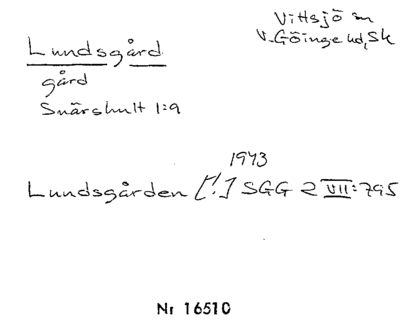 Vittsjö sn
V. Göinge hd, Sk
Lundsgård
gård
Snärshult 1:9
1943
Lundsgården [!] SGG 2 VII:795
Nr 16510